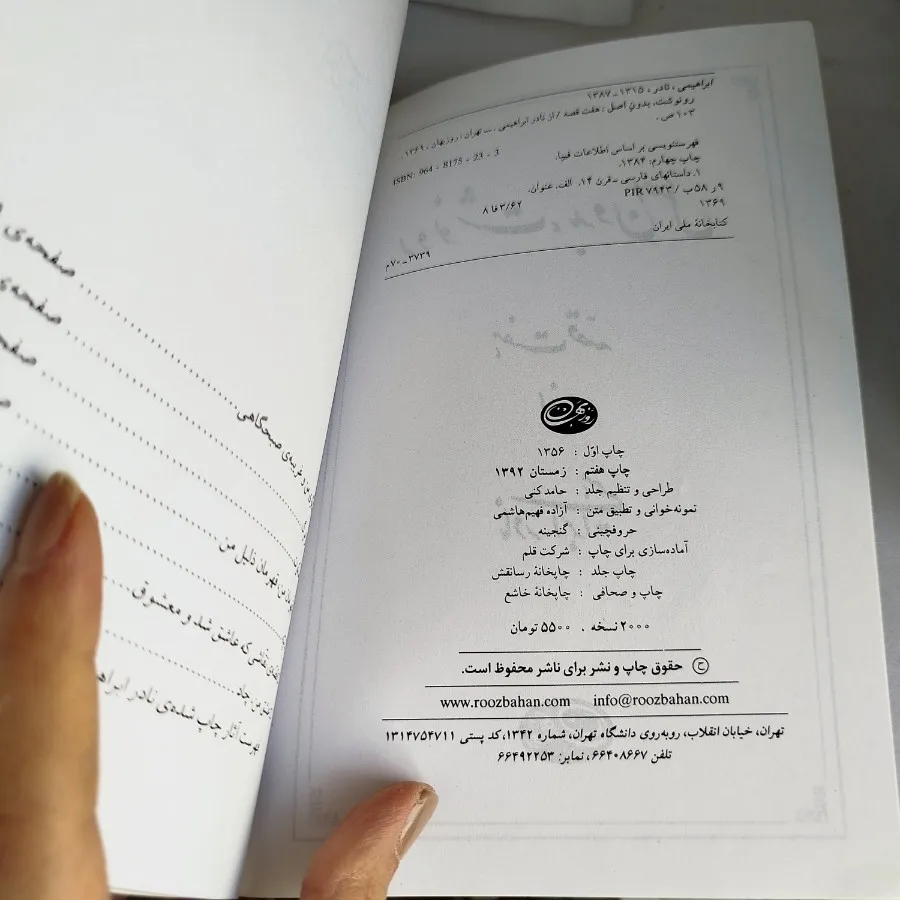 ابراهیمی، نادر، ۱۳۱۵ ـ ۱۳۸۷
رونوشت، بدون اصل: هفت قصه / از نادر ابراهیمی. ـــ تهران: روزبهان، ۱۳۶۹.
۱۰۳ ص.
ISBN: 964 - 8175 - 23 - 3
فهرستنویسی بر اساس اطلاعات فیپا.
چاپ چهارم: ۱۳۸۴.
۱. داستانهای فارسی ـ قرن ۱۴. الف. عنوان.
۹ر ۵۸ب / PIR ۷۹۴۳
۸فا ۳/۶۲
۱۳۶۹
کتابخانهٔ ملی ایران
۳۷۳۹ـ۷۰م
روزبهان
چاپ اوّل : ۱۳۵۶
چاپ هفتم : زمستان ۱۳۹۲
طراحی و تنظیم جلد : حامد کنی
نمونه‌خوانی و تطبیق متن : آزاده فهیم‌هاشمی
حروفچینی : گنجینه
آماده‌سازی برای چاپ : شرکت قلم
چاپ جلد : چاپخانهٔ رسانقش
چاپ و صحافی : چاپخانهٔ خاشع
۲۰۰۰ نسخه . ۵۵۰۰ تومان
ح حقوق چاپ و نشر برای ناشر محفوظ است.
www.roozbahan.com info@roozbahan.com
تهران، خیابان انقلاب، روبه‌روی دانشگاه تهران، شماره ۱۳۴۲، کد پستی ۱۳۱۴۷۵۴۷۱۱
تلفن ۶۶۴۰۸۶۶۷، نمابر: ۶۶۴۹۲۲۵۳
غریبه‌ی صبحگاهی
صفحه‌ی
قهرمان ذلیل من
صفحه‌ی
که عاشق شد و معشوق
فهرست آثار چاپ شده‌ی نادر